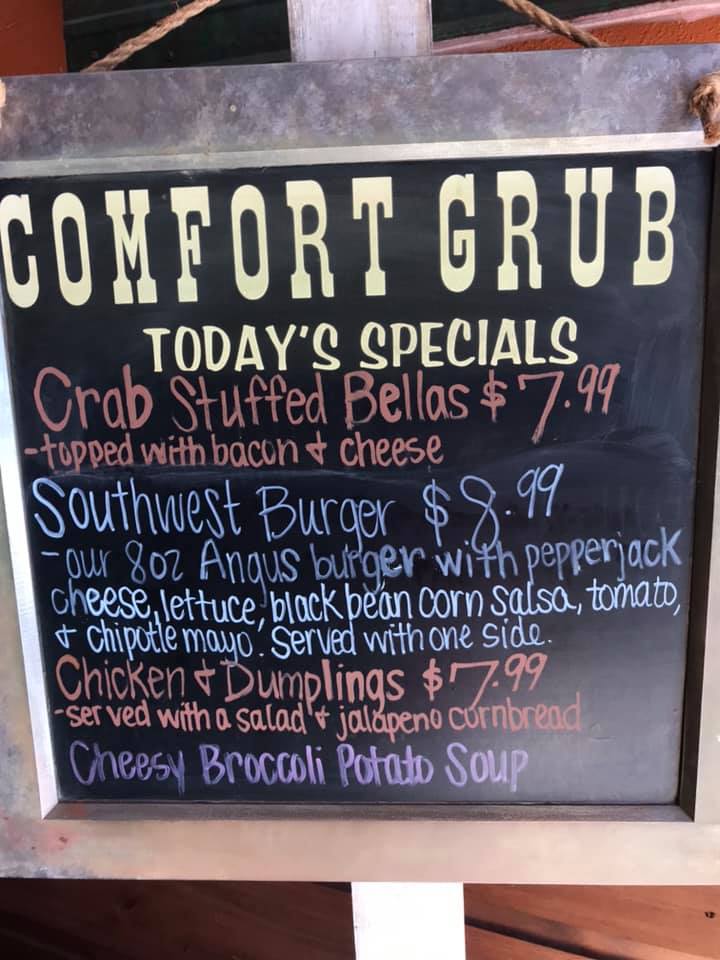 COMFORT GRUB
TODAY'S SPECIALS
Crab Stuffed Bellas $7.99
-topped with bacon & cheese
Southwest Burger $8.99
-our 8oz Angus burger with pepperjack
cheese, lettuce, black bean corn salsa, tomato,
& chipotle mayo. Served with one side.
Chicken & Dumplings $7.99
-served with a salad & jalapeno cornbread
Cheesy Broccoli Potato Soup